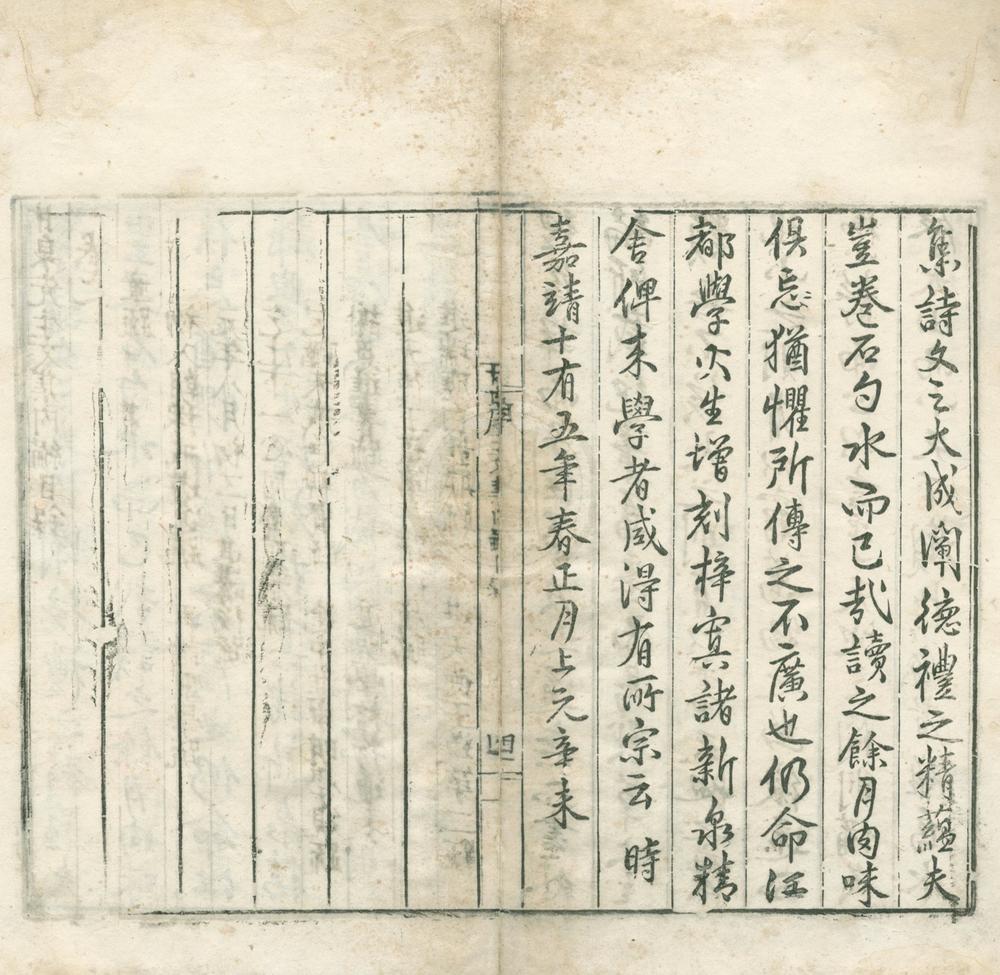 集詩文之大成闡德禮之精蘊夫
豈卷石勺水而已哉讀之餘月肉味
俱忘猶懼所傳之不廣也仍命江
都學火生增刻梓寘諸新泉精
舍俾来學者咸得有所宗云 時
嘉靖十有五年春正月上元辛未
四